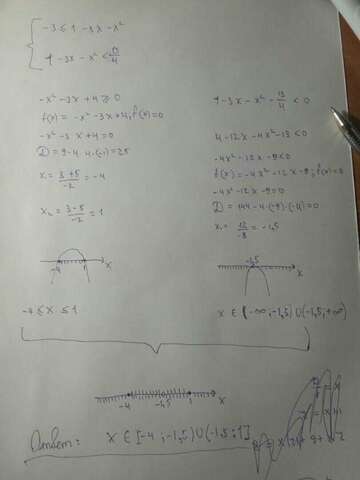 -3 ≤ 1 -3x - x²
1 -3x - x² < 13/4
-x² -3x +4 ≥ 0
f(x) = -x² -3x +4; f(x)=0
-x² -3x +4 = 0
D = 9 - 4·4·(-1) = 25
x₁ = 3+5/-2 = -4
x₂ = 3-5/-2 = 1
-4 1 x
-4 ≤ x ≤ 1
1 -3x - x² - 13/4 < 0
4 -12x -4x² -13 < 0
-4x² -12x -9 < 0
f(x) = -4x² -12x -9; f(x)=0
-4x² -12x -9 = 0
D = 144 - 4·(-9)·(-4) = 0
x₁ = 12/-8 = -1,5
-1,5 x
x ∈ (-∞; -1,5) ∪ (-1,5; +∞)
-4 -1,5 1 x
x ∈ [-4; -1,5) ∪ (-1,5; 1]